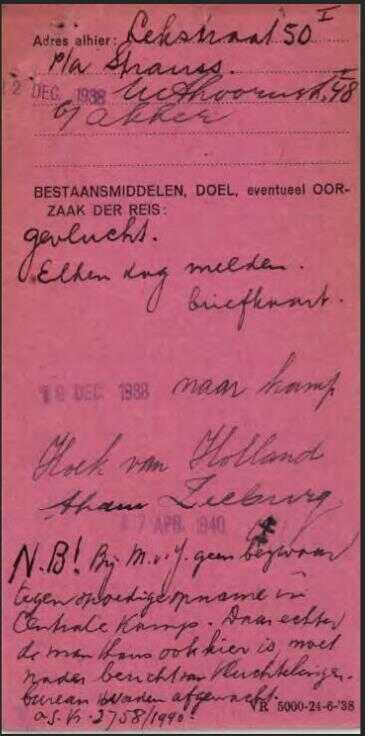 Adres alhier: Lekstraat 50 I
p/a Strauss.
22 DEC. 1938 Uithoornstr. 48 I
p/a Akker
BESTAANSMIDDELEN, DOEL, eventueel OOR-
ZAAK DER REIS:
gevlucht.
Elken dag melden.
briefkaart.
19 DEC. 1938 naar kamp
Hoek van Holland
thans Zeeburg
17 APR. 1940
N.B! Bij M.v.J. geen bezwaar
tegen spoedige opname in
Centrale Kamp. Daar echter
de man thans ook hier is, moet
nader bericht van Vluchtelingen-
bureau worden afgewacht.
VR 5000-24-6-'38
a.S. Vr. 2758/1940.